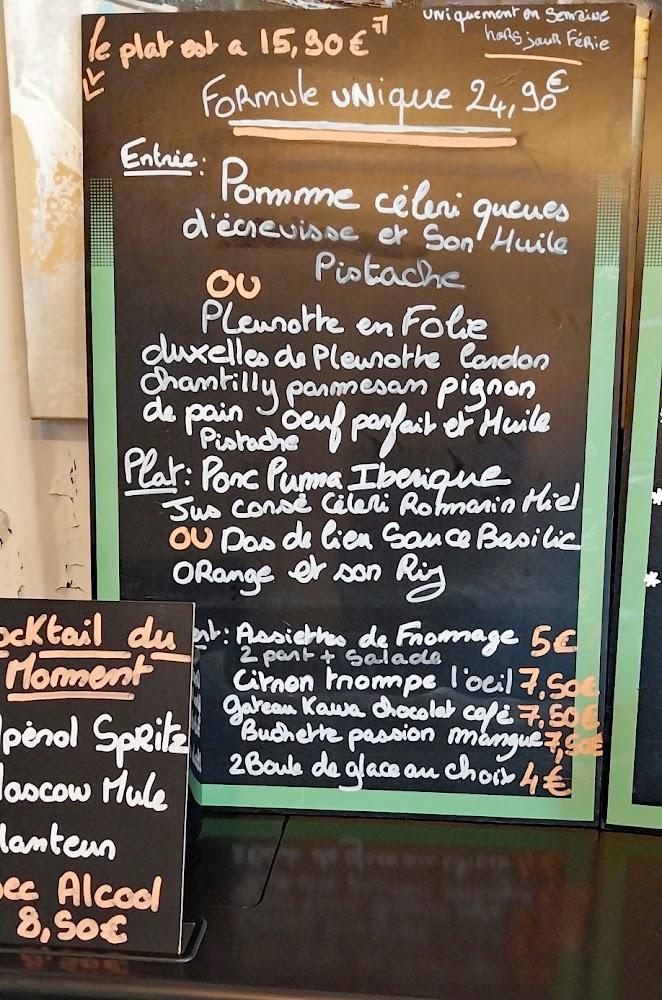 le plat est a 15,90€
uniquement en Semaine
hors jour Férie
FoRmule uNique 24,90€
Entrée:
Pommme céleri queues
d'écrevisse et Son Huile
Pistache
OU
Pleurotte en Folie
duxelles de Pleurotte lardon
Chantilly parmesan pignon
de pain oeuf parfait et Huile
Pistache
Plat: Porc Puma Iberique
Jus corsé Céleri Romarin Miel
OU Dos de lieu Sauce Basilic
ORange et son Riz
rt: Assiettes de Fromage 5€
2 part + Salade
Citron trompe l'oeil 7,50€
gateau Kawa chocolat café 7,50€
Buchette passion mangue 7,50€
2 Boule de glace au choix 4€
ocktail du
Moment
pérol SpRitz
oscow Mule
lanteur
ec Alcool
8,50€